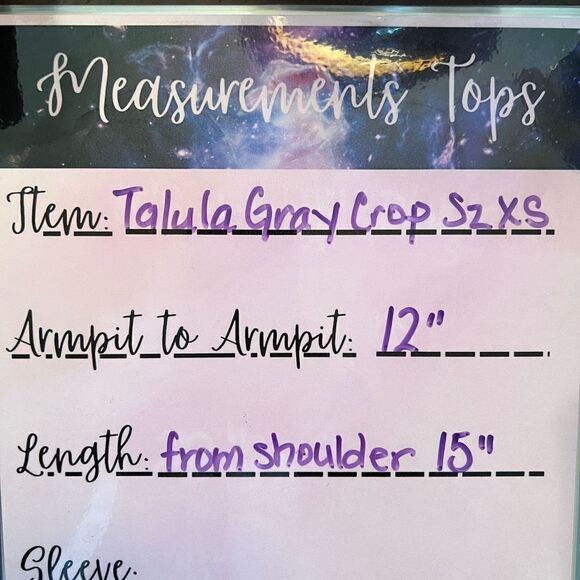 Measurements Tops
Item: Talula Gray Crop Sz XS
Armpit to Armpit: 12"
Length: from shoulder 15"
Sleeve: